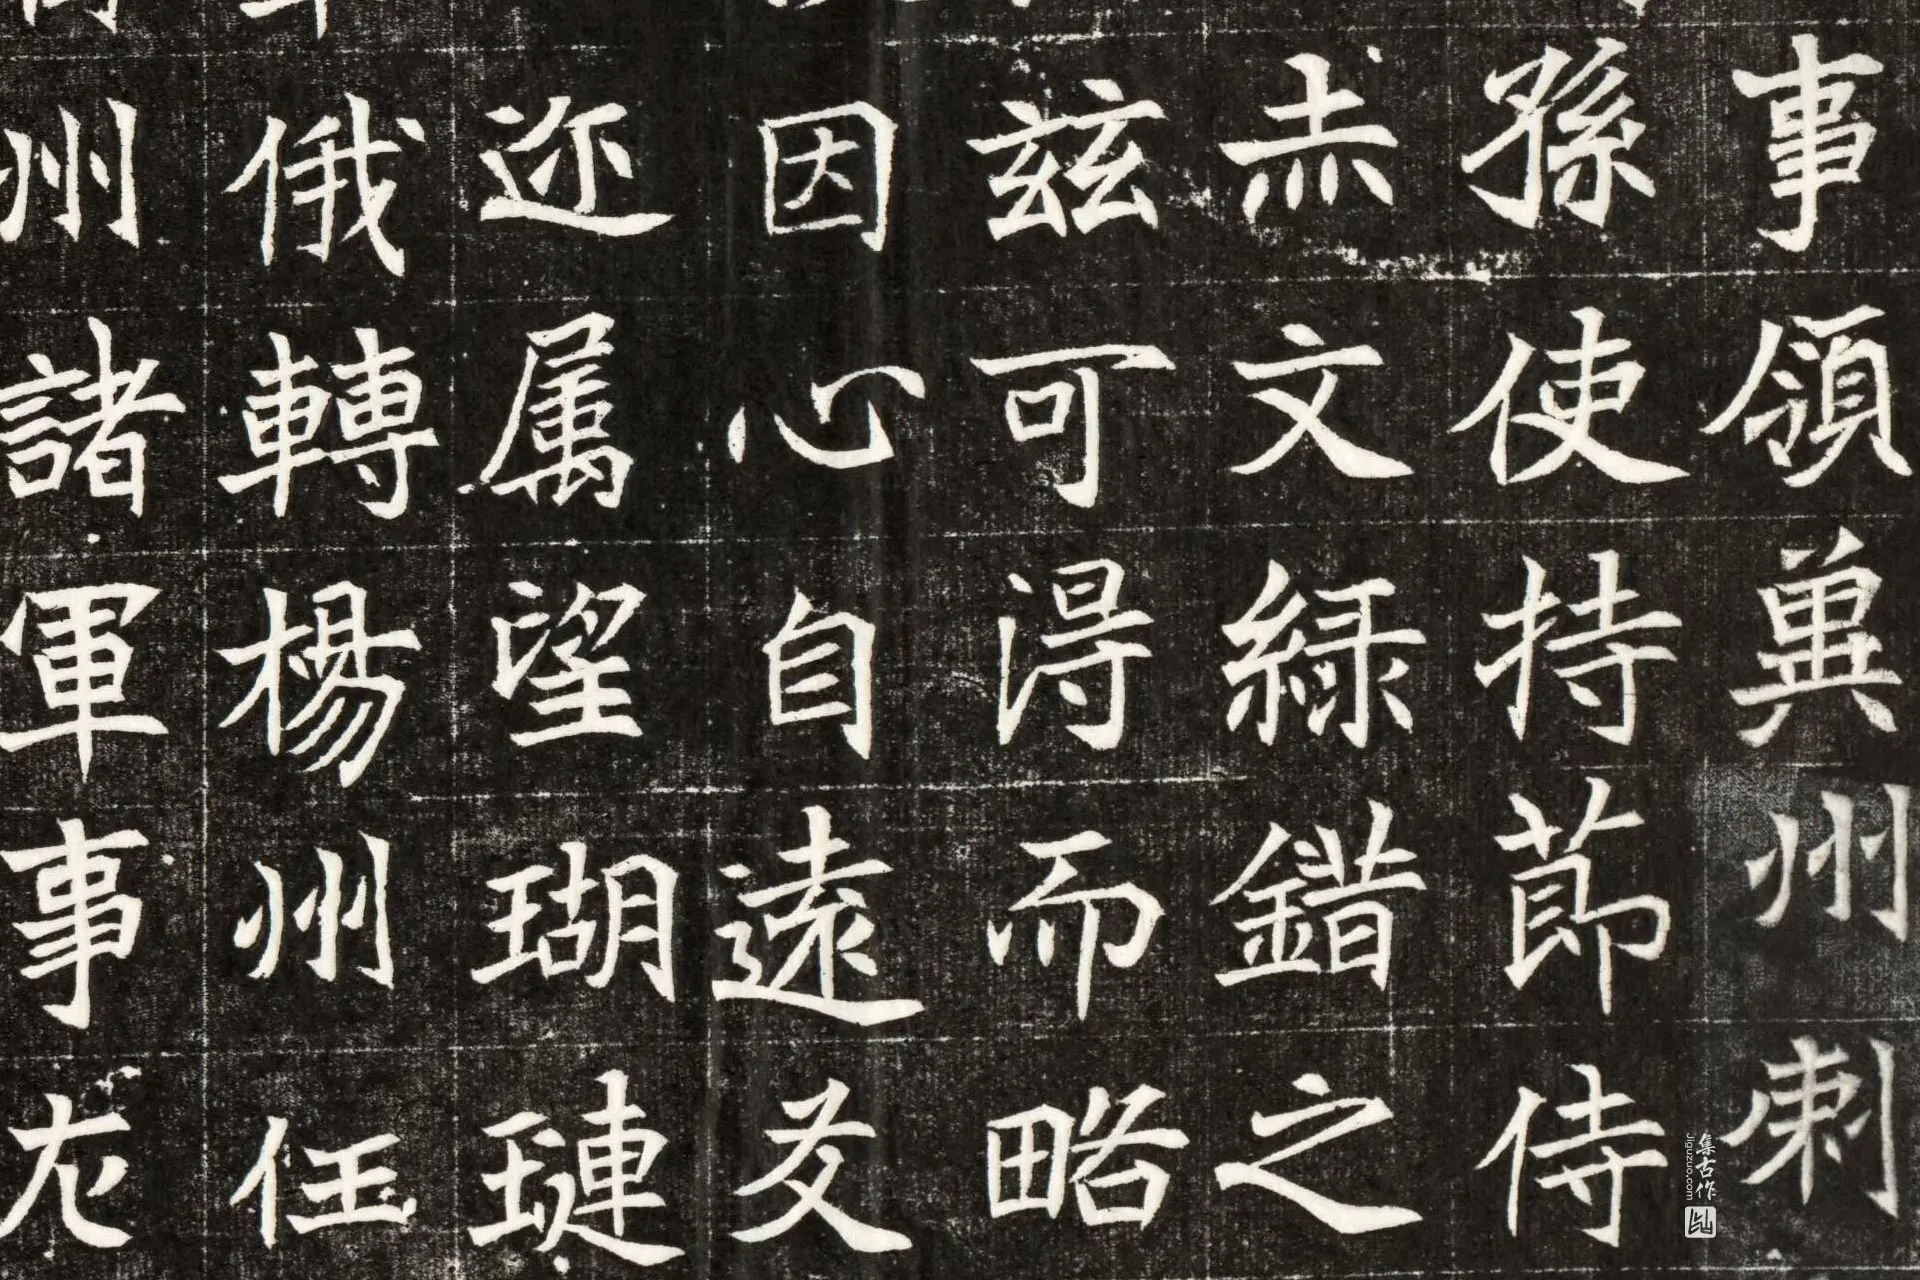 事領兾州刺
孫使持莭侍
赤文緑錯之
兹可淂而略
因心自遠友
迩属望瑚璉
俄轉楊州任
州諸軍事
集古作
Jiguzuo.com